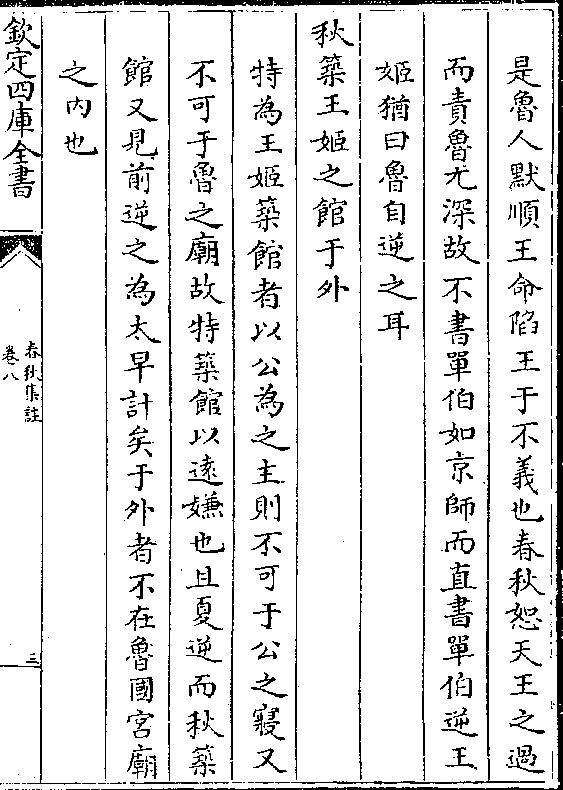 是魯人默順王命陷王于不義也春秋恕天王之過
而責魯尤深故不書單伯如京師而直書單伯逆王
姬猶曰魯自逆之耳
秋築王姬之館于外
特為王姬築館者以公為之主則不可于公之寢又
不可于魯之廟故特築館以遠嫌也且夏逆而秋築
館又見前逆之為太早計矣于外者不在魯國宮廟
之内也
欽定四庫全書
春秋集註
卷八
三